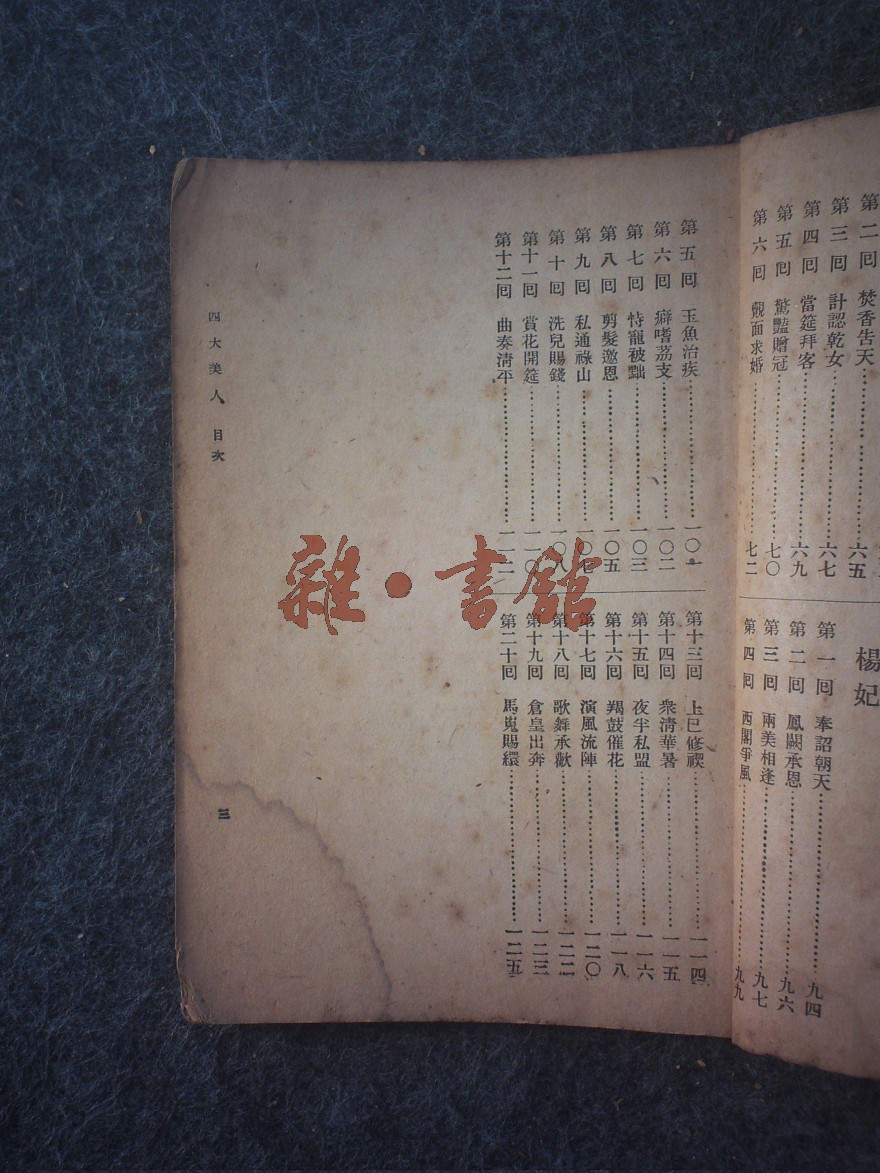 第二回 焚香告天 六五
第三回 計認乾女 六七
第四回 當筵拜客 六九
第五回 驚豔贈冠 七〇
第六回 覿面求婚 七二
楊妃
第一回 奉詔朝天 九四
第二回 鳳闕承恩 九六
第三回 兩美相逢 九七
第四回 西閣爭風 九九
第五回 玉魚治疾 一〇一
第六回 癖嗜荔支 一〇二
第七回 恃寵被黜 一〇三
第八回 剪髮邀恩 一〇五
第九回 私通祿山 一〇七
第十回 洗兒賜錢 一〇八
第十一回 賞花開筵 一一〇
第十二回 曲奏淸平 一一二
第十三回 上巳修禊 一一四
第十四回 衆淸華暑 一一五
第十五回 夜半私盟 一一六
第十六回 羯鼓催花 一一八
第十七回 演風流陣 一二〇
第十八回 歌舞承歡 一二二
第十九回 倉皇出奔 一二三
第二十回 馬嵬賜繯 一二五
四大美人 目次
三
雜·書館